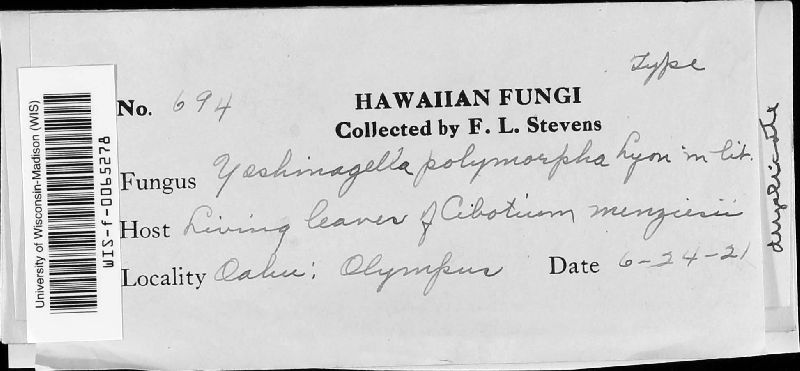 Type
No. 694
HAWAIIAN FUNGI
Collected by F. L. Stevens
Fungus Yoshinagella polymorpha Lyon in lit.
Host Living leaves of Cibotium menziesii
Locality Oahu: Olympus Date 6-24-21
duplicate
University of Wisconsin-Madison (WIS)
WIS-f-0065278